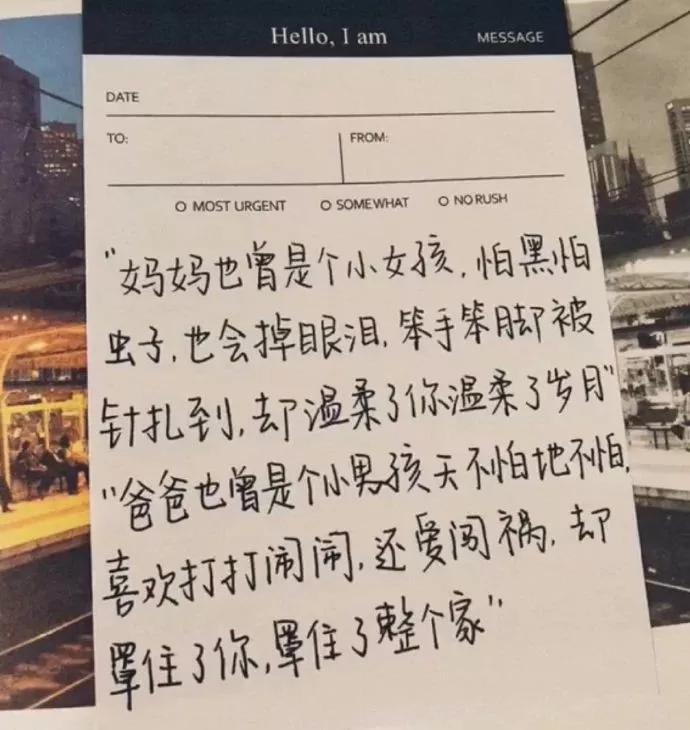 Hello, I am
MESSAGE
DATE
TO:
FROM:
O MOST URGENT O SOMEWHAT O NO RUSH
"妈妈也曾是个小女孩，怕黑怕
虫子，也会掉眼泪，笨手笨脚却被
针扎到，却温柔了你温柔了岁月"
"爸爸也曾是个小男孩天不怕地不怕，
喜欢打打闹闹，还爱闯祸，却
罩住了你，罩住了整个家"